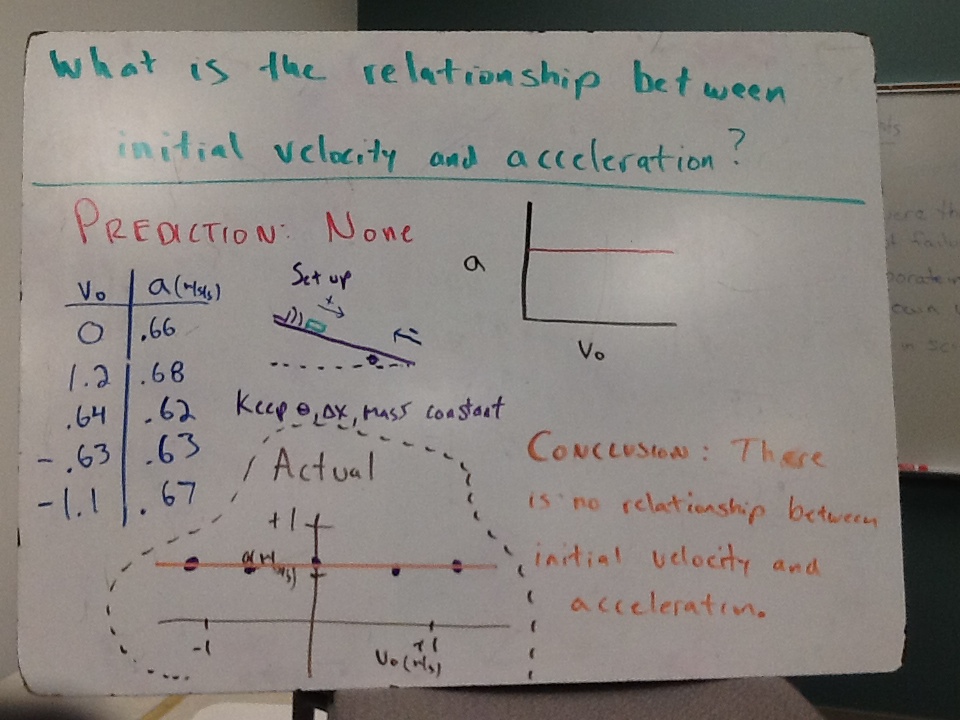 What is the relationship between
initial velocity and acceleration?
PREDICTION: None
a
Vo
Vo a (m/s/s)
0 .66
1.2 .68
.64 .62
-.63 .63
-1.1 .67
Set up
x
Keep θ, Δx, mass constant
Actual
+1
a(m/s/s)
-1
+1
Vo (m/s)
CONCLUSION: There
is no relationship between
initial velocity and
acceleration.